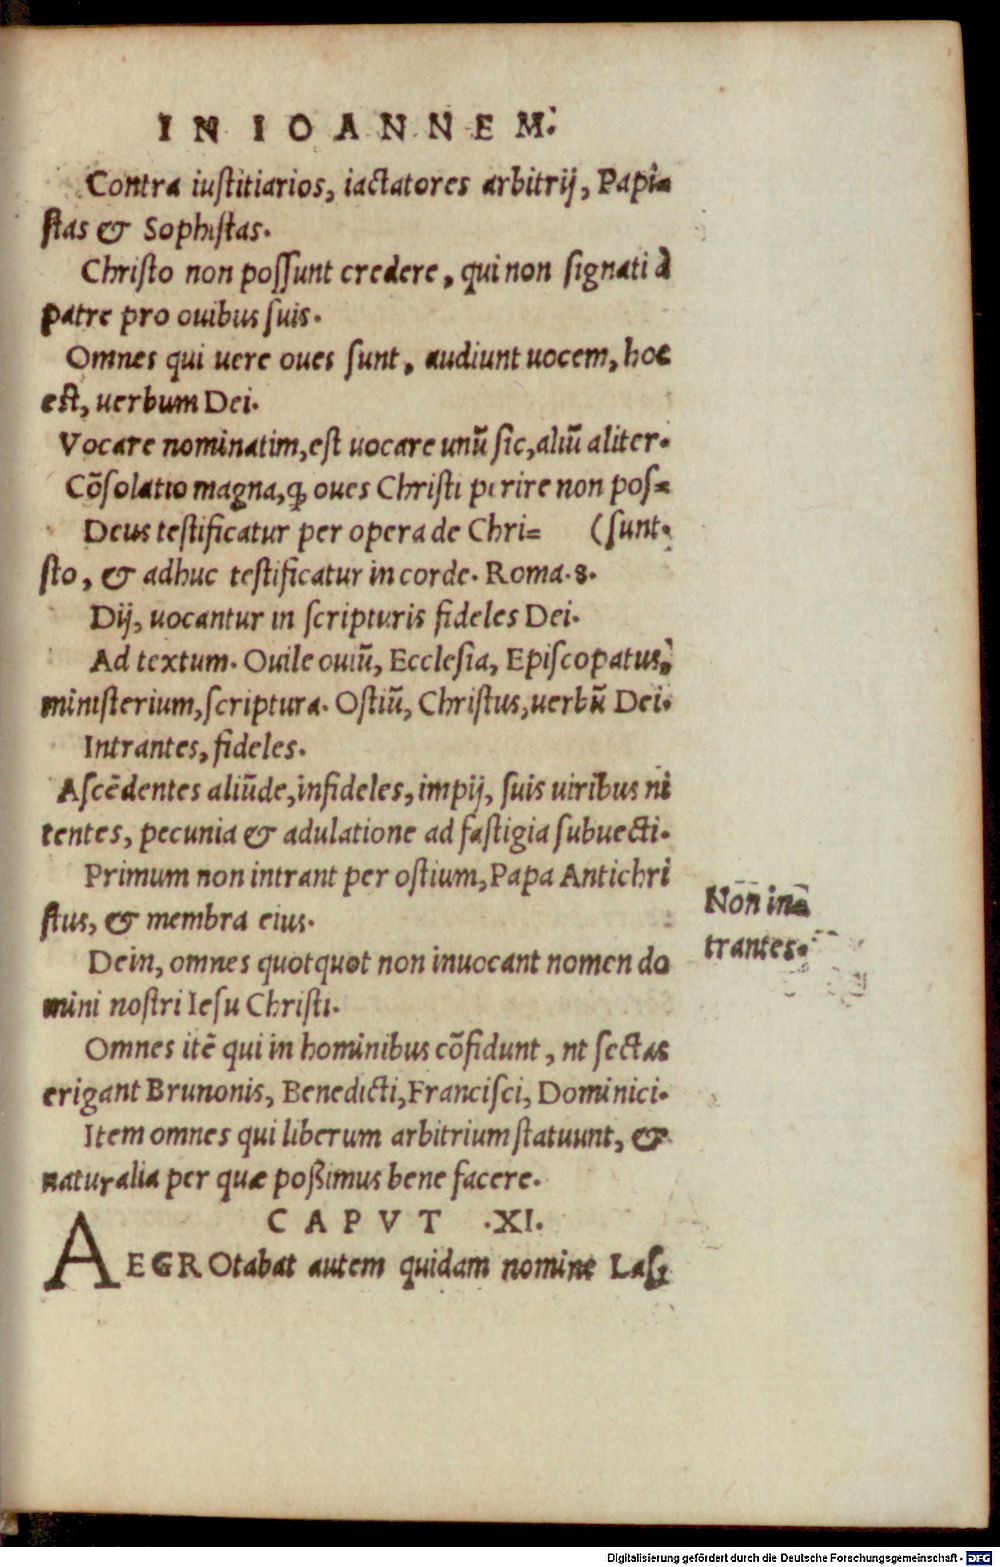 IN IOANNEM.
Contra iustitiarios, iactatores arbitrij, Papi=
stas & Sophistas.
Christo non possunt credere, qui non signati à
patre pro ouibus suis.
Omnes qui uere oues sunt, audiunt uocem, hoc
est, uerbum Dei.
Vocare nominatim, est uocare unū sic, aliū aliter.
Cōsolatio magna, ꝙ oues Christi perire non pos=
Deus testificatur per opera de Chri= (sunt.
sto, & adhuc testificatur in corde. Roma. 8.
Dij, uocantur in scripturis fideles Dei.
Ad textum. Ouile ouiū, Ecclesia, Episcopatus,
ministerium, scriptura. Ostiū, Christus, uerbū Dei.
Intrantes, fideles.
Ascēdentes aliūde, infideles, impij, suis uiribus ni
tentes, pecunia & adulatione ad fastigia subuecti.
Primum non intrant per ostium, Papa Antichri
stus, & membra eius.
Non in=
trantes.
Dein, omnes quotquot non inuocant nomen do
mini nostri Iesu Christi.
Omnes itē qui in hominibus cōfidunt, nt sectas
erigant Brunonis, Benedicti, Francisci, Dominici.
Item omnes qui liberum arbitrium statuunt, &
naturalia per quæ possimus bene facere.
CAPVT .XI.
AEGROtabat autem quidam nomine
Digitalisierung gefördert durch die Deutsche Forschungsgemeinschaft - DFG